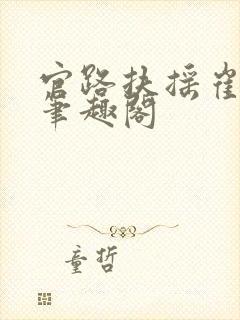 官路扶摇崔
笔趣阁
童哲